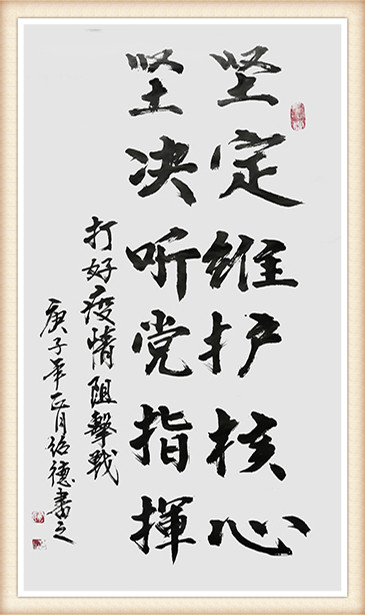 坚定维护核心
坚决听党指揮
打好疫情阻擊战
庚子年正月绍德书之